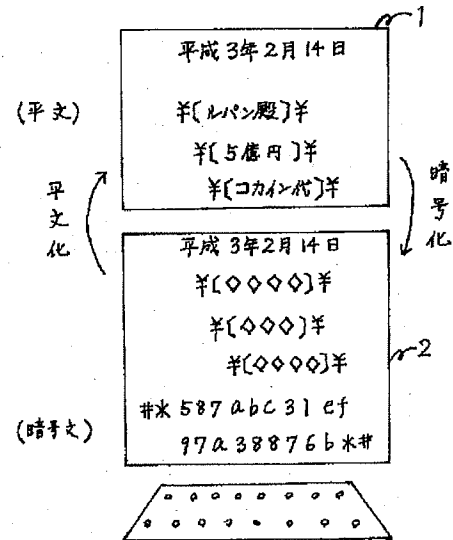 1
平成3年2月14日
(平文)
¥[ルパン殿]¥
¥[5億円]¥
¥[コカイン代]¥
平文化
暗号化
平成3年2月14日
¥[◇◇◇◇]¥
¥[◇◇◇]¥
¥[◇◇◇◇]¥
2
#*587abc31ef
(暗号文)
97a38876b*#